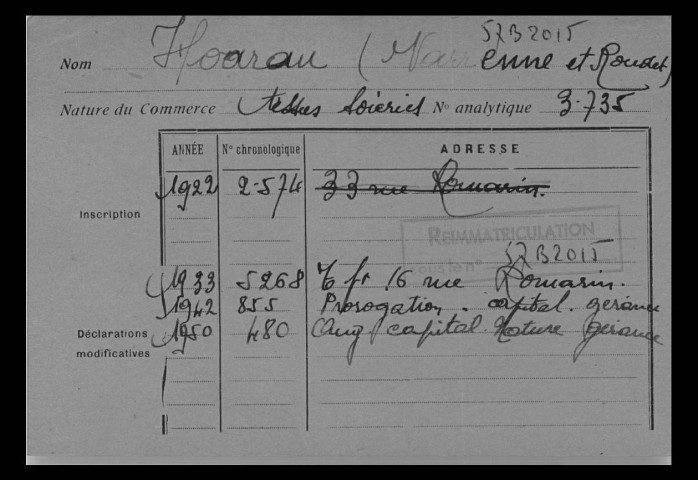 57B2015
Nom Hoarau ( Varrenne et Roudet)
Nature du Commerce tissus Soieries N° analytique 3.735
ANNÉE N° chronologique ADRESSE
1922 2.574 33 rue Romarin.
Inscription
REIMMATRICULATION
sous le n° 57B2015
1933 5268 Tfr 16 rue Romarin.
1942 855 Prorogation. capital. gérance
Déclarations 1950 480 Aug capital. Nature gérance
modificatives